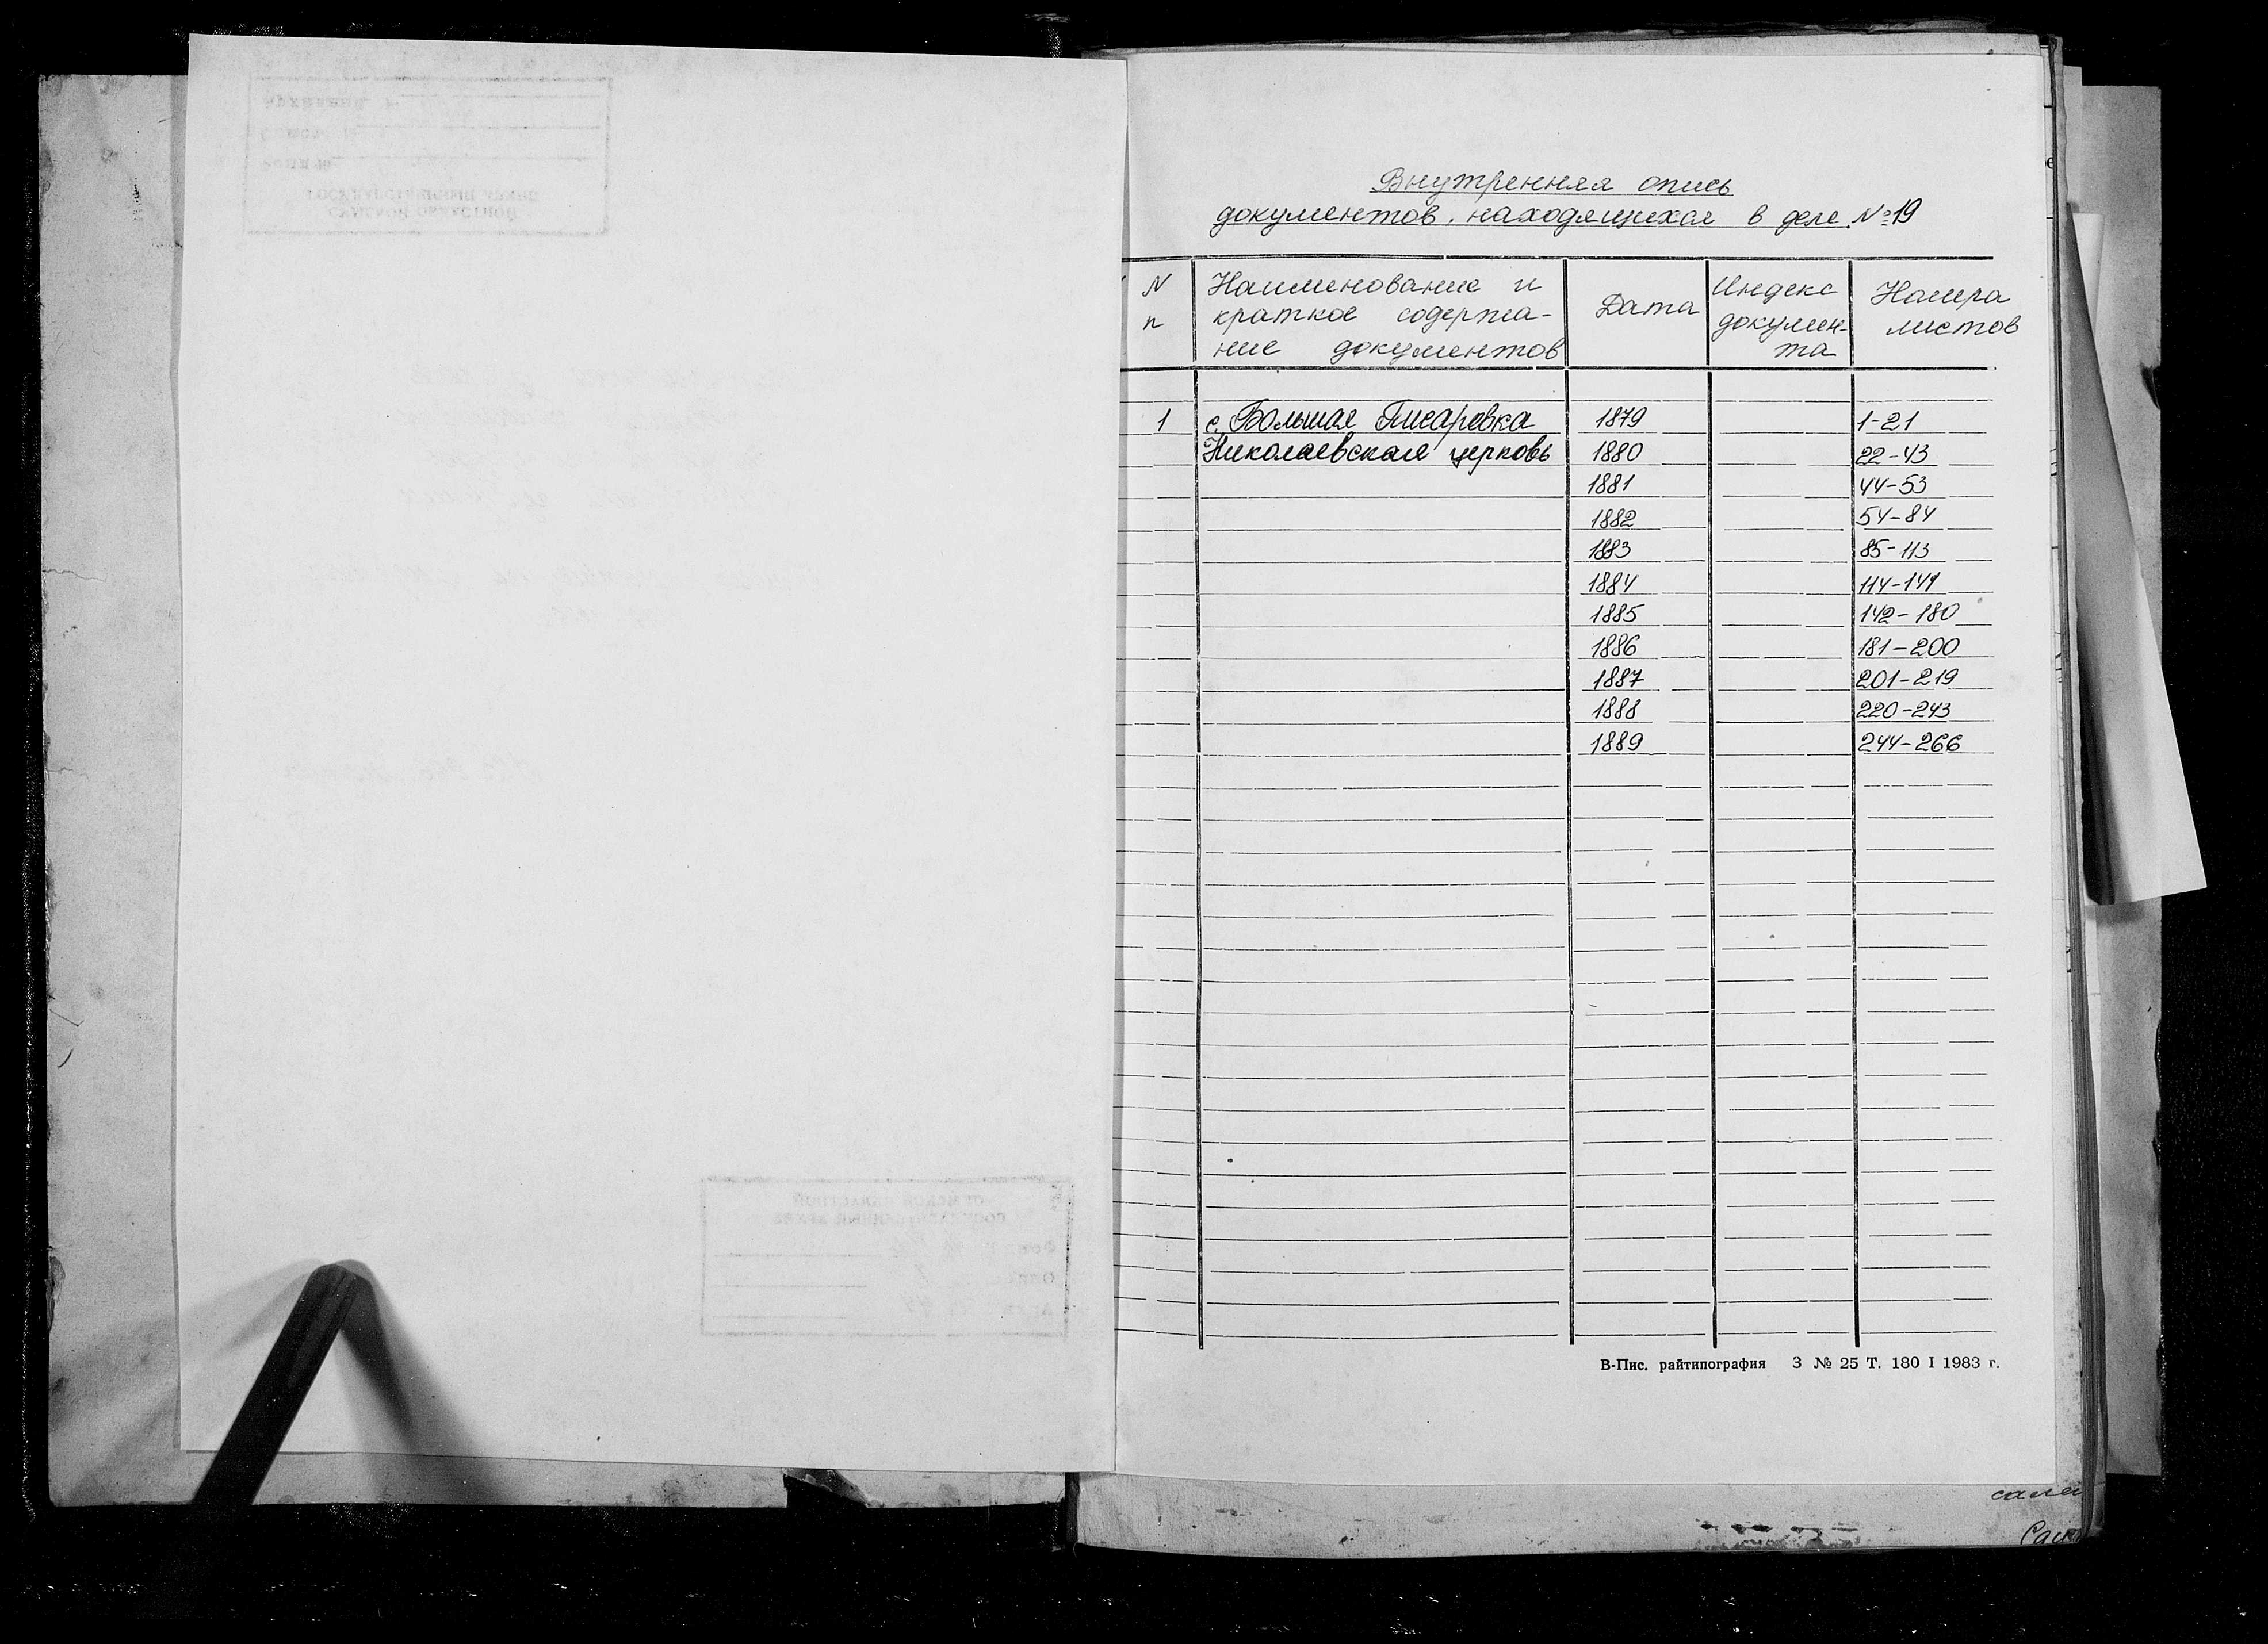 Внутренняя опись
документов, находящихся в деле №19
N п
Наименование и краткое содержа-ние документов
Дата
Индекс докумен-та
Номера листов
1 с. Большая Писаревка 1879 1-21
Николаевская церковь 1880 22-43
1881 44-53
1882 54-84
1883 85-113
1884 114-141
1885 142-180
1886 181-200
1887 201-219
1888 220-243
1889 244-266
В-Пис. райтипография З № 25 Т. 180 I 1983 г.